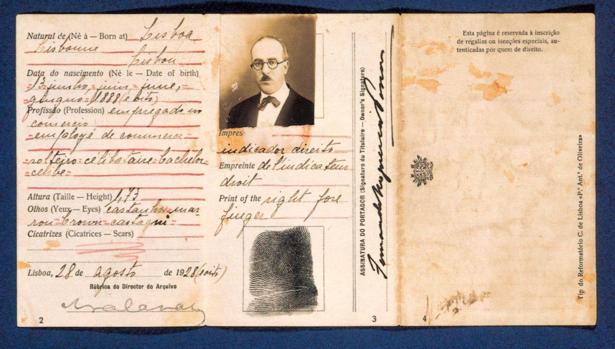 Natural de (Né à — Born at) Lisboa
Lisbonne
Lisbon
Data do nascimento (Né le — Date of birth)
13 junho, juin, june,
giugno, 1888 (oito)
Profissão (Profession) empregado no
comercio
employé de commerce
solteiro célibataire bachelor
celibe
Altura (Taille — Height) 1,73
Olhos (Yeux — Eyes) castanhos mar
ron brown castagni
Cicatrizes (Cicatrices — Scars)
Lisboa, 28 de agosto de 1928 (oito)
Rúbrica do Director do Arquivo
2
Impres
indicador direito
Empreinte de l'indicateur
droit
Print of the right fore
finger
3
ASSINATURA DO PORTADOR (Signature du Titulaire — Owner's Signature)
Fernando Nogueira Pessoa
Esta página é reservada à inscrição
de regalias ou isenções especiais, au-
tenticadas por quem de direito.
4
Tip. do Reformatório C. de Lisboa «P.e Ant.º de Oliveira»